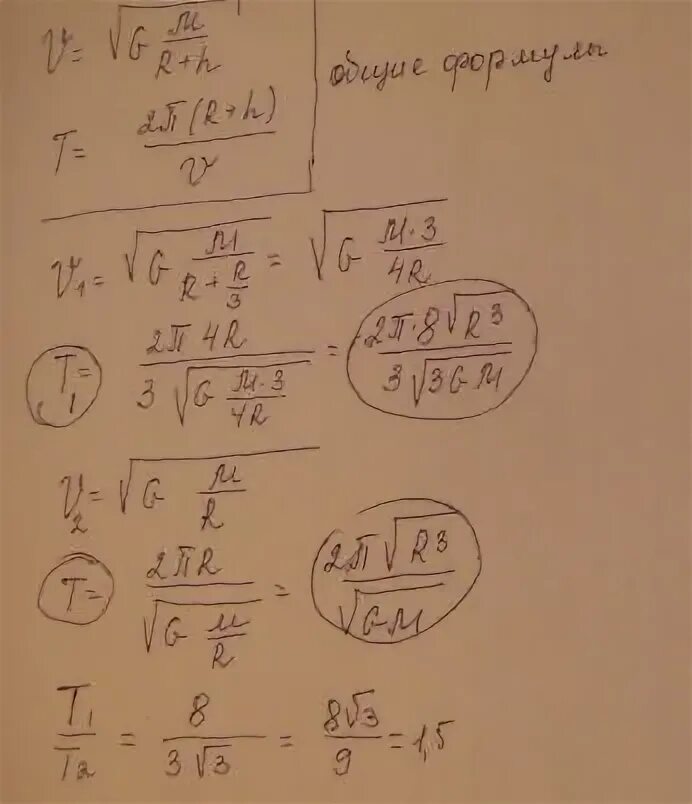 V = √(G M/(R+h))
общие формулы
T = 2π(R+h)/V
V₁ = √(G M/(R+R/3)) = √(G M·3/4R)
T₁ = 2π4R/(3√(G M·3/4R)) = 2π·8√R³/(3√3GM)
V₂ = √(G M/R)
T = 2πR/√(G M/R) = 2π√R³/√GM
T₁/T₂ = 8/(3√3) = 8√3/9 = 1,5